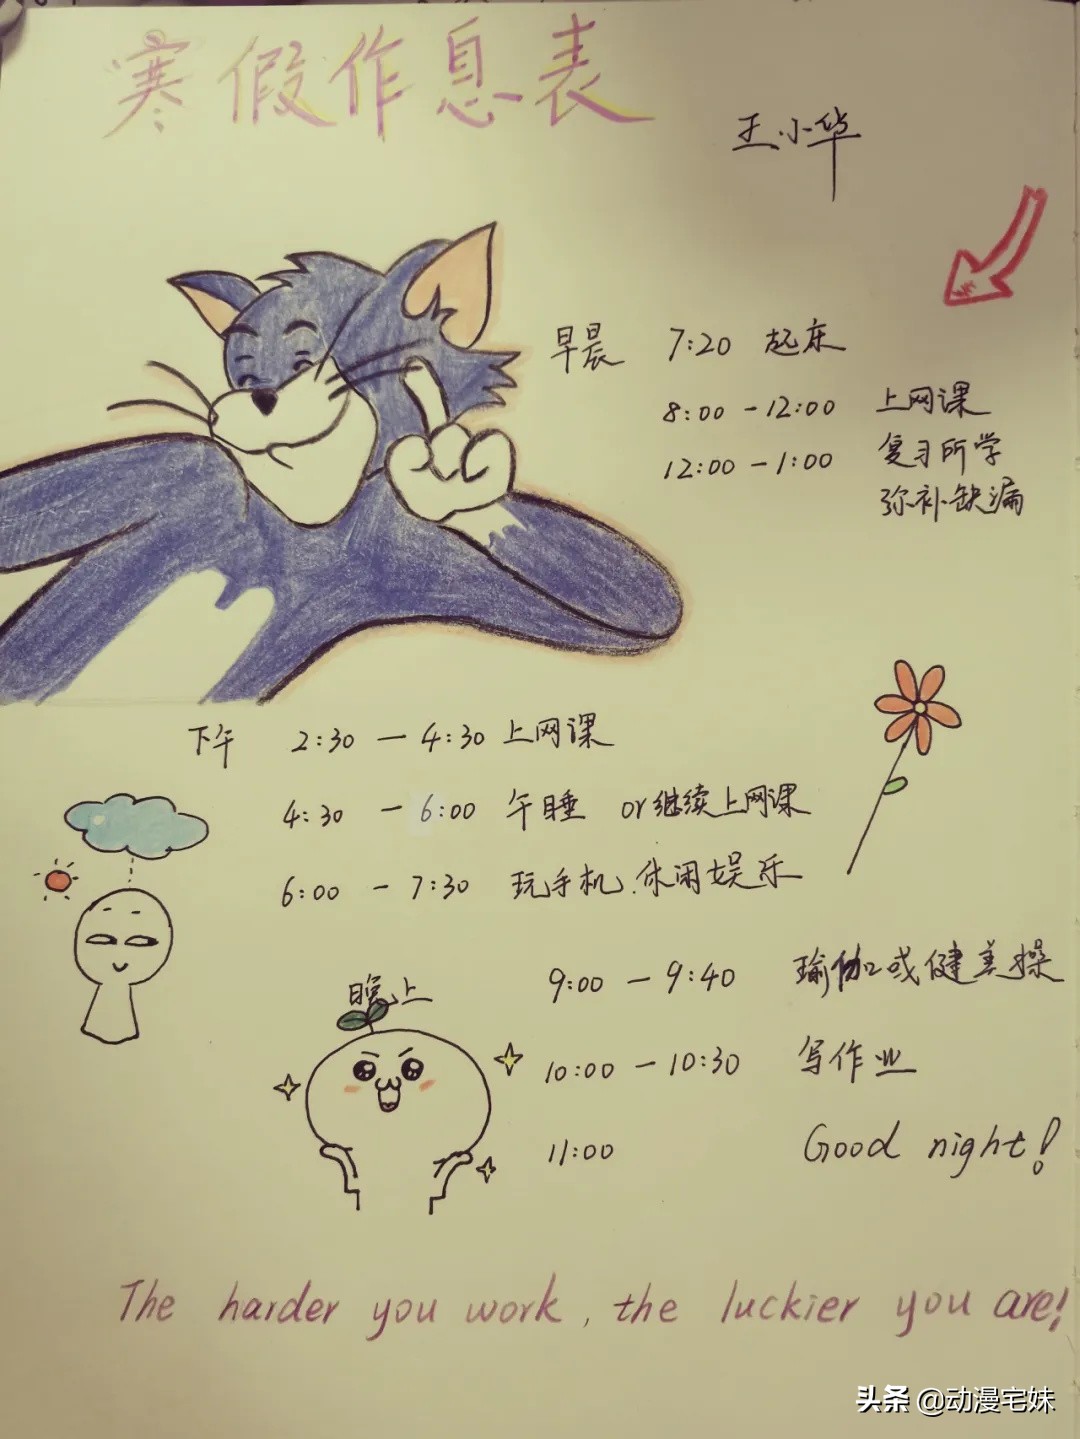 寒假作息表
王小华
早晨 7:20 起床
8:00 - 12:00 上网课
12:00 - 1:00 复习所学
弥补缺漏
下午 2:30 - 4:30 上网课
4:30 - 6:00 午睡 or继续上网课
6:00 - 7:30 玩手机、休闲娱乐
晚上 9:00 - 9:40 瑜伽或健美操
10:00 - 10:30 写作业
11:00 Good night!
The harder you work, the luckier you are!
头条 @动漫宅妹